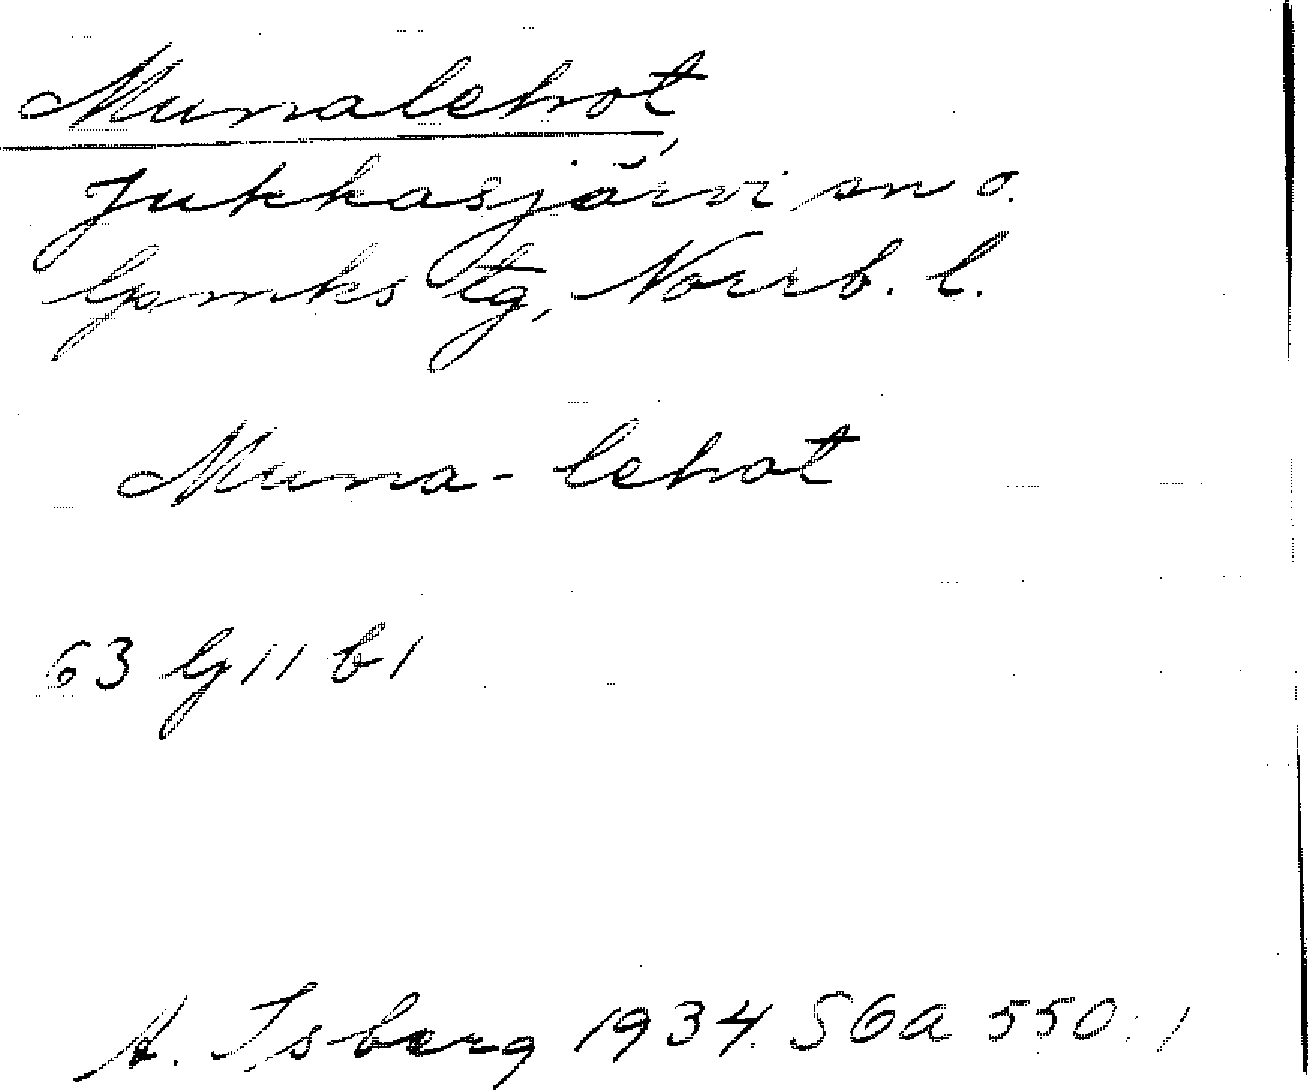 Munalehot,
Jukkasjärvi sn o.
lpmks tg, Norrb. l.
Muna-lehot
63 G 11 b 1
A. Isberg 1934. SGA 550:1